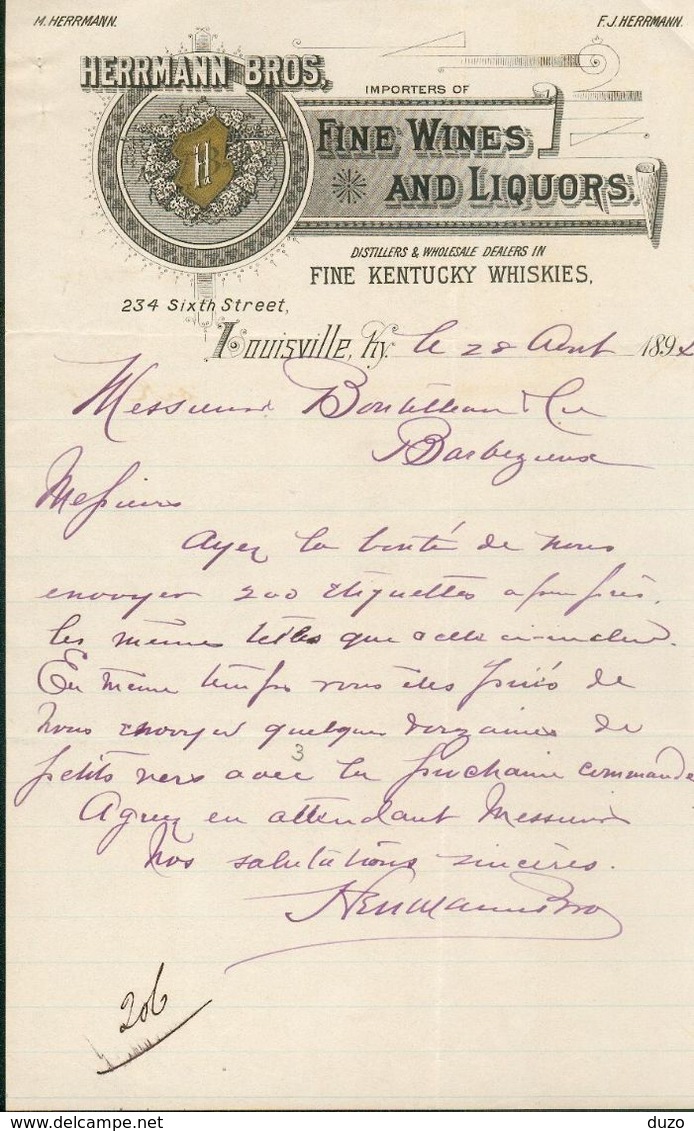 M. HERRMANN.
F. J. HERRMANN.
HERRMANN BROS,
IMPORTERS OF
FINE WINES
AND LIQUORS,
H
DISTILLERS & WHOLESALE DEALERS IN
FINE KENTUCKY WHISKIES,
234 Sixth Street,
Louisville, Ky. le 28 Aout 189
Messieurs Boutelleau & Cie
Barbezieux
Messieurs
Ayez la bonté de nous
envoyer 200 étiquettes a peu près,
les mêmes telles que celle ci-inclus.
En même temps vous êtes priés de
nous envoyer quelques douzaines de
3
petits vers avec la prochaine commande
Agréez en attendant Messieurs
Nos salutations sincères.
Herrmann Bros
206
duzo
duzo